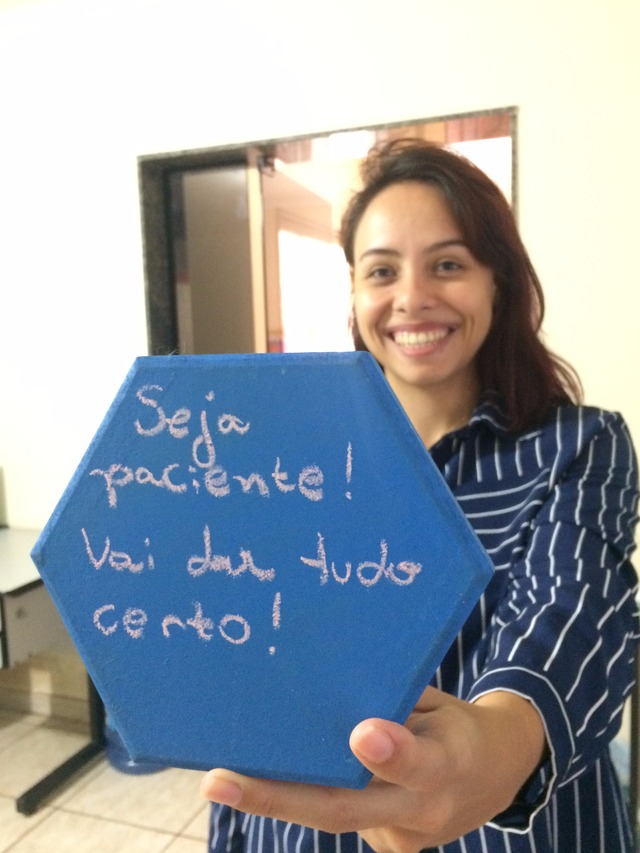 Seja
paciente!
Vai dar tudo
certo!